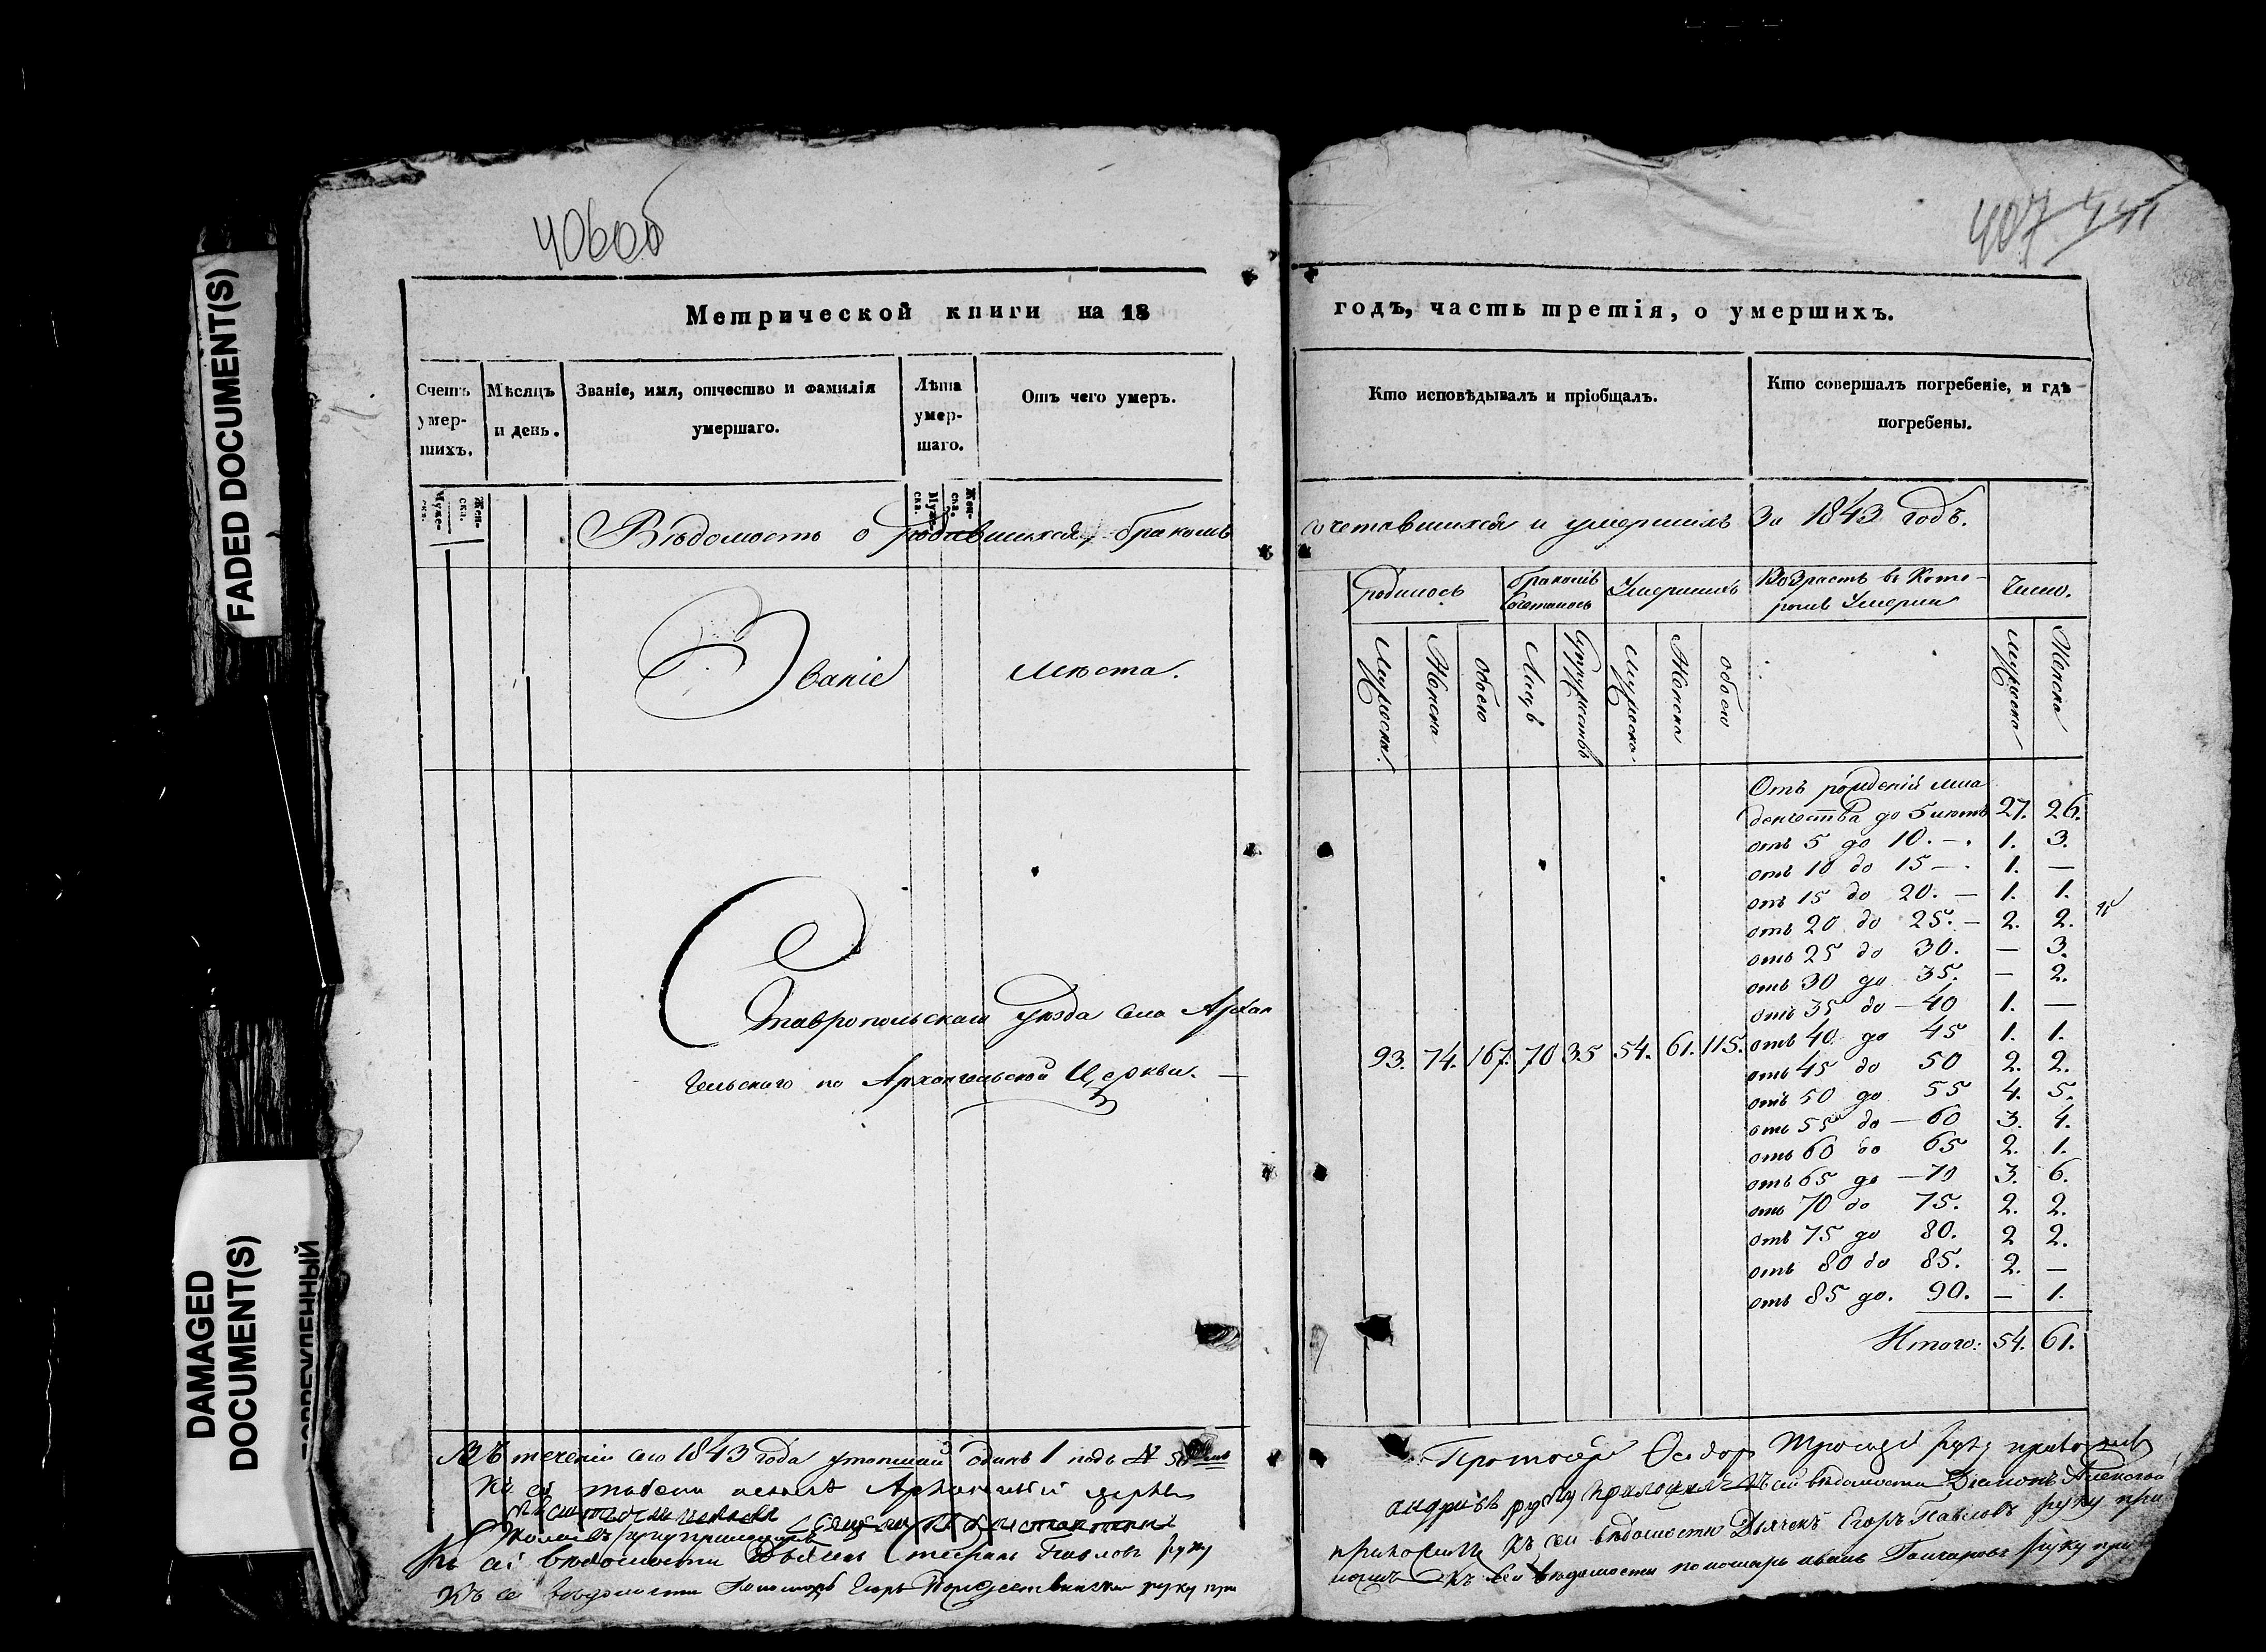 FADED DOCUMENT(S)
DAMAGED
DOCUMENT(S)
406об
407
Метрической книги на 18
годъ, часть третія, о умершихъ.
Счетъ умер-шихъ.
Мѣсяцъ и день.
Званіе, имя, отчество и фамилія умершаго.
Лѣта умер-шаго.
Отъ чего умеръ.
Кто исповѣдывалъ и пріобщалъ.
Кто совершалъ погребеніе, и гдѣ погребены.
Муже-ска.
Жен-ска.
Муже-ска.
Жен-ска.
Вѣдомость о родившихся, бракомъ
сочетавшихся и умершихъ За 1843 годъ.
Званіе мѣста.
Родилось
бракомъ Сочеталось
Умершихъ
Возрастъ въ Кото-
ромъ Умерли
Число.
Мужска
Женска
Обоего
Лицъ
Супружествъ
Мужска
Женска
обоего
Мужска
Женска
Ставропольскаго уѣзда села Архан
гельскаго по Архангельской Церкви. —
93. 74. 167. 70 35 54. 61. 115.
Отъ рожденія мла
денчества до 5 лѣтъ 27. 26.
отъ 5 до 10. — 1. 3.
отъ 10 до 15 — 1. —
отъ 15 до 20. — 1. 1.
отъ 20 до 25. — 2. 2.
отъ 25 до 30. — 3.
отъ 30 до 35. — 2.
отъ 35 до — 40 1. —
отъ 40 до 45 1. 1.
отъ 45 до 50 2. 2.
отъ 50 до 55 4. 5.
отъ 55 до — 60 3. 4.
отъ 60 до 65 2. 1.
отъ 65 до — 70 3. 6.
отъ 70 до 75. 2. 2.
отъ 75 до 80. 2 2.
отъ 80 до 85. 2. —
отъ 85 до. 90. — 1.
Итого: 54. 61.
Въ теченіи сего 1843 года утопшій одинъ 1 подъ №
Къ сей вѣдомости Дьячекъ Павловъ руку
Къ се вѣдомости Пономарь Егоръ Рождественски руку при
руку приложилъ
руку приложилъ Къ сей вѣдомости Діаконъ
приложилъ Къ сей вѣдомости Дьячекъ Егоръ Павловъ руку при
ложилъ Къ сей вѣдомости пономарь иванъ Гончаровъ руку при